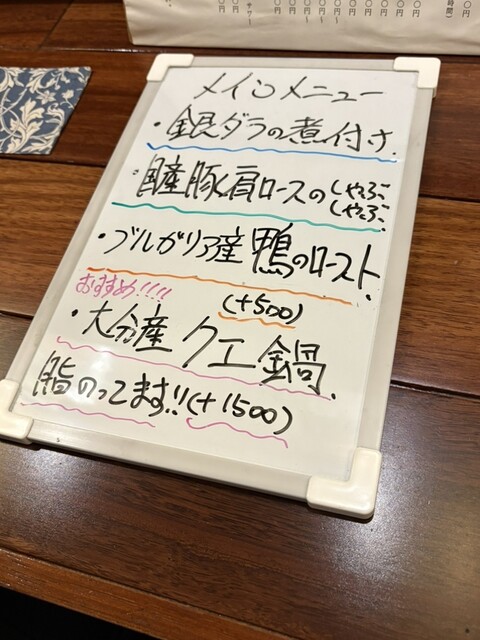 メインメニュー
・銀ダラの煮付け
・国産豚肩ロースのしゃぶしゃぶ
・ブルガリア産鴨のロースト
(+500)
おすすめ!!!!
・大分産クエ鍋
脂のってます!!(+1500)